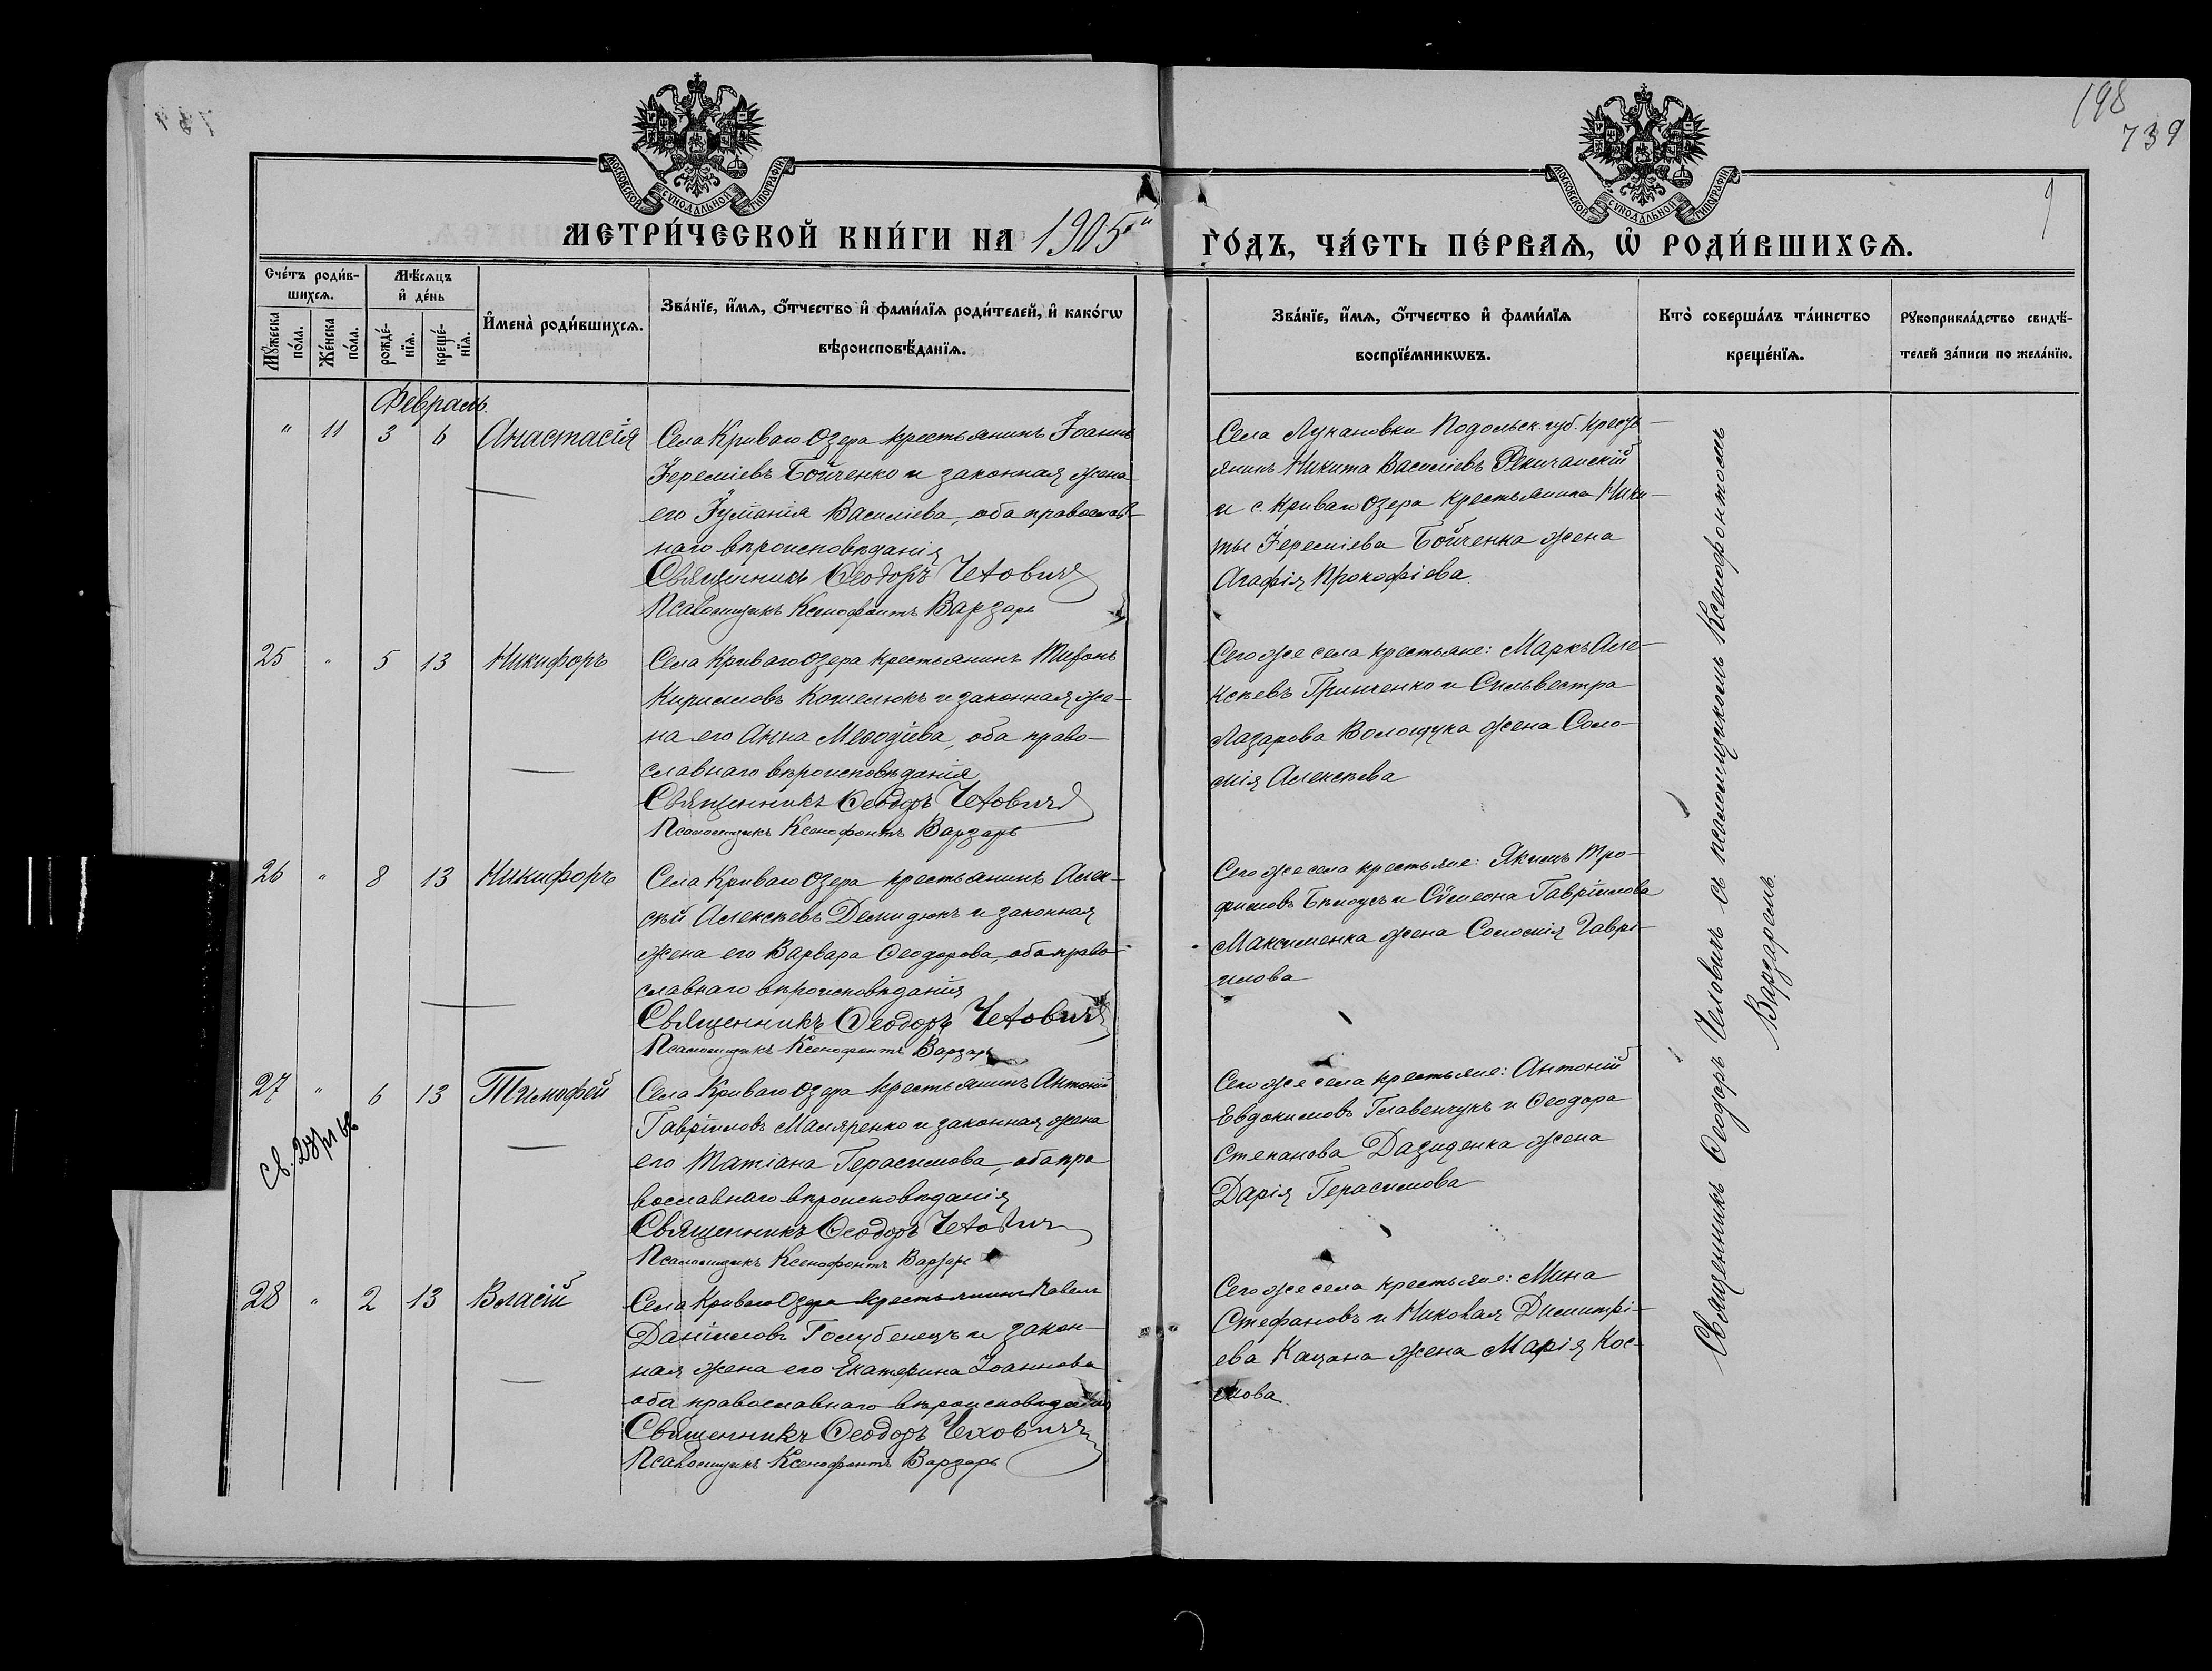 198
739
9
МОСКОВСКОЙ СѴНОДАЛЬНОЙ ТИПОГРАФІИ
МОСКОВСКОЙ СѴНОДАЛЬНОЙ ТИПОГРАФІИ
МЕТРИ́ЧЕСКОЙ КНИ́ГИ НА 1905"
ГО́ДЪ, ЧА́СТЬ ПЕ́РВАѦ, Ѡ҆ РОДИ́ВШИХСѦ.
Сче́тъ роди́в-
шихсѧ.
Мꙋ́жеска по́ла.
Же́нска по́ла.
Мѣ́сѧцъ
и҆ де́нь
рожде́-
нїѧ.
креще́-
нїѧ.
И҆мена̀ роди́вшихсѧ.
Зва́нїе, и҆́мѧ, ѻ҆́тчество и҆ фами́лїѧ роди́телей, и҆ како́гѡ
вѣроисповѣ́данїѧ.
Зва́нїе, и҆́мѧ, ѻ҆́тчество и҆ фами́лїѧ
воспрїе́мникѡвъ.
Кто̀ соверша́лъ та́инство
креще́нїѧ.
Рꙋкоприкла́дство свидѣ́-
телей за́писи по жела́нїю.
Февраль.
" 11 3 6 Анастасія
Села Криваго Озера крестьянинъ Іоаннъ
Іереміевъ Бойченко и законная жена
его Іуліанія Василіева, оба православ-
наго вѣроисповѣданія
Священникъ Ѳеодоръ Чехович
Псаломщикъ Ксенофонтъ Варзарь
Села Лукановки Подольск. губ. кресть-
янинъ Никита Василіевъ
и с. Криваго Озера крестьянина Ники-
ты Іереміева Бойченка жена
Агафія Прокофіева.
25 " 5 13 Никифоръ
Села Криваго Озера крестьянинъ
Кирилловъ Кошелюкъ и законная же-
на его Анна Меѳодіева, оба право-
славнаго вѣроисповѣданія
Священникъ Ѳеодоръ Чехович
Псаломщикъ Ксенофонтъ Варзарь
Сего же села крестьяне: Маркъ Але-
ксѣевъ Гринченко и Сильвестра
Лазарова Волощука жена Соло-
мія Алексѣева
26 " 8 13 Никифоръ
Села Криваго Озера крестьянинъ Алек-
сѣй Алексѣевъ Демидюкъ и законная
жена его Варвара Ѳеодорова, оба право-
славнаго вѣроисповѣданія
Священникъ Ѳеодоръ Чехович
Псаломщикъ Ксенофонтъ Варзарь
Сего же села крестьяне: Якимъ Тро-
фимовъ Бѣлоусъ и Сѵмеона Гавріилова
Максименка жена Соломія Гаврі-
илова
27 " 6 13 Тимофей
Села Криваго Озера крестьянинъ Антоній
Гавріиловъ Маляренко и законная жена
его Татіана Герасимова, оба пра
вославнаго вѣроисповѣданія
Священникъ Ѳеодоръ Чехович
Псаломщикъ Ксенофонтъ Варзарь
Сего же села крестьяне: Антоній
Евдокимовъ Главенчукъ и Ѳеодора
Степанова Давиденка жена
Дарія Герасимова
28 " 2 13 Власій
Села Криваго Озера крестьянинъ Павелъ
Даніиловъ Голубенецъ и закон-
ная жена его Екатерина Іоаннова
оба православнаго вѣроисповѣданія
Священникъ Ѳеодоръ Чехович
Псаломщикъ Ксенофонтъ Варзарь
Сего же села крестьяне: Мина
Стефановъ и Николая Димитрі-
ева Кацана жена Марія Кос-
мова.
Священникъ Ѳеодоръ Чеховичъ съ псаломщикомъ Ксенофонтомъ
Варзаремъ.